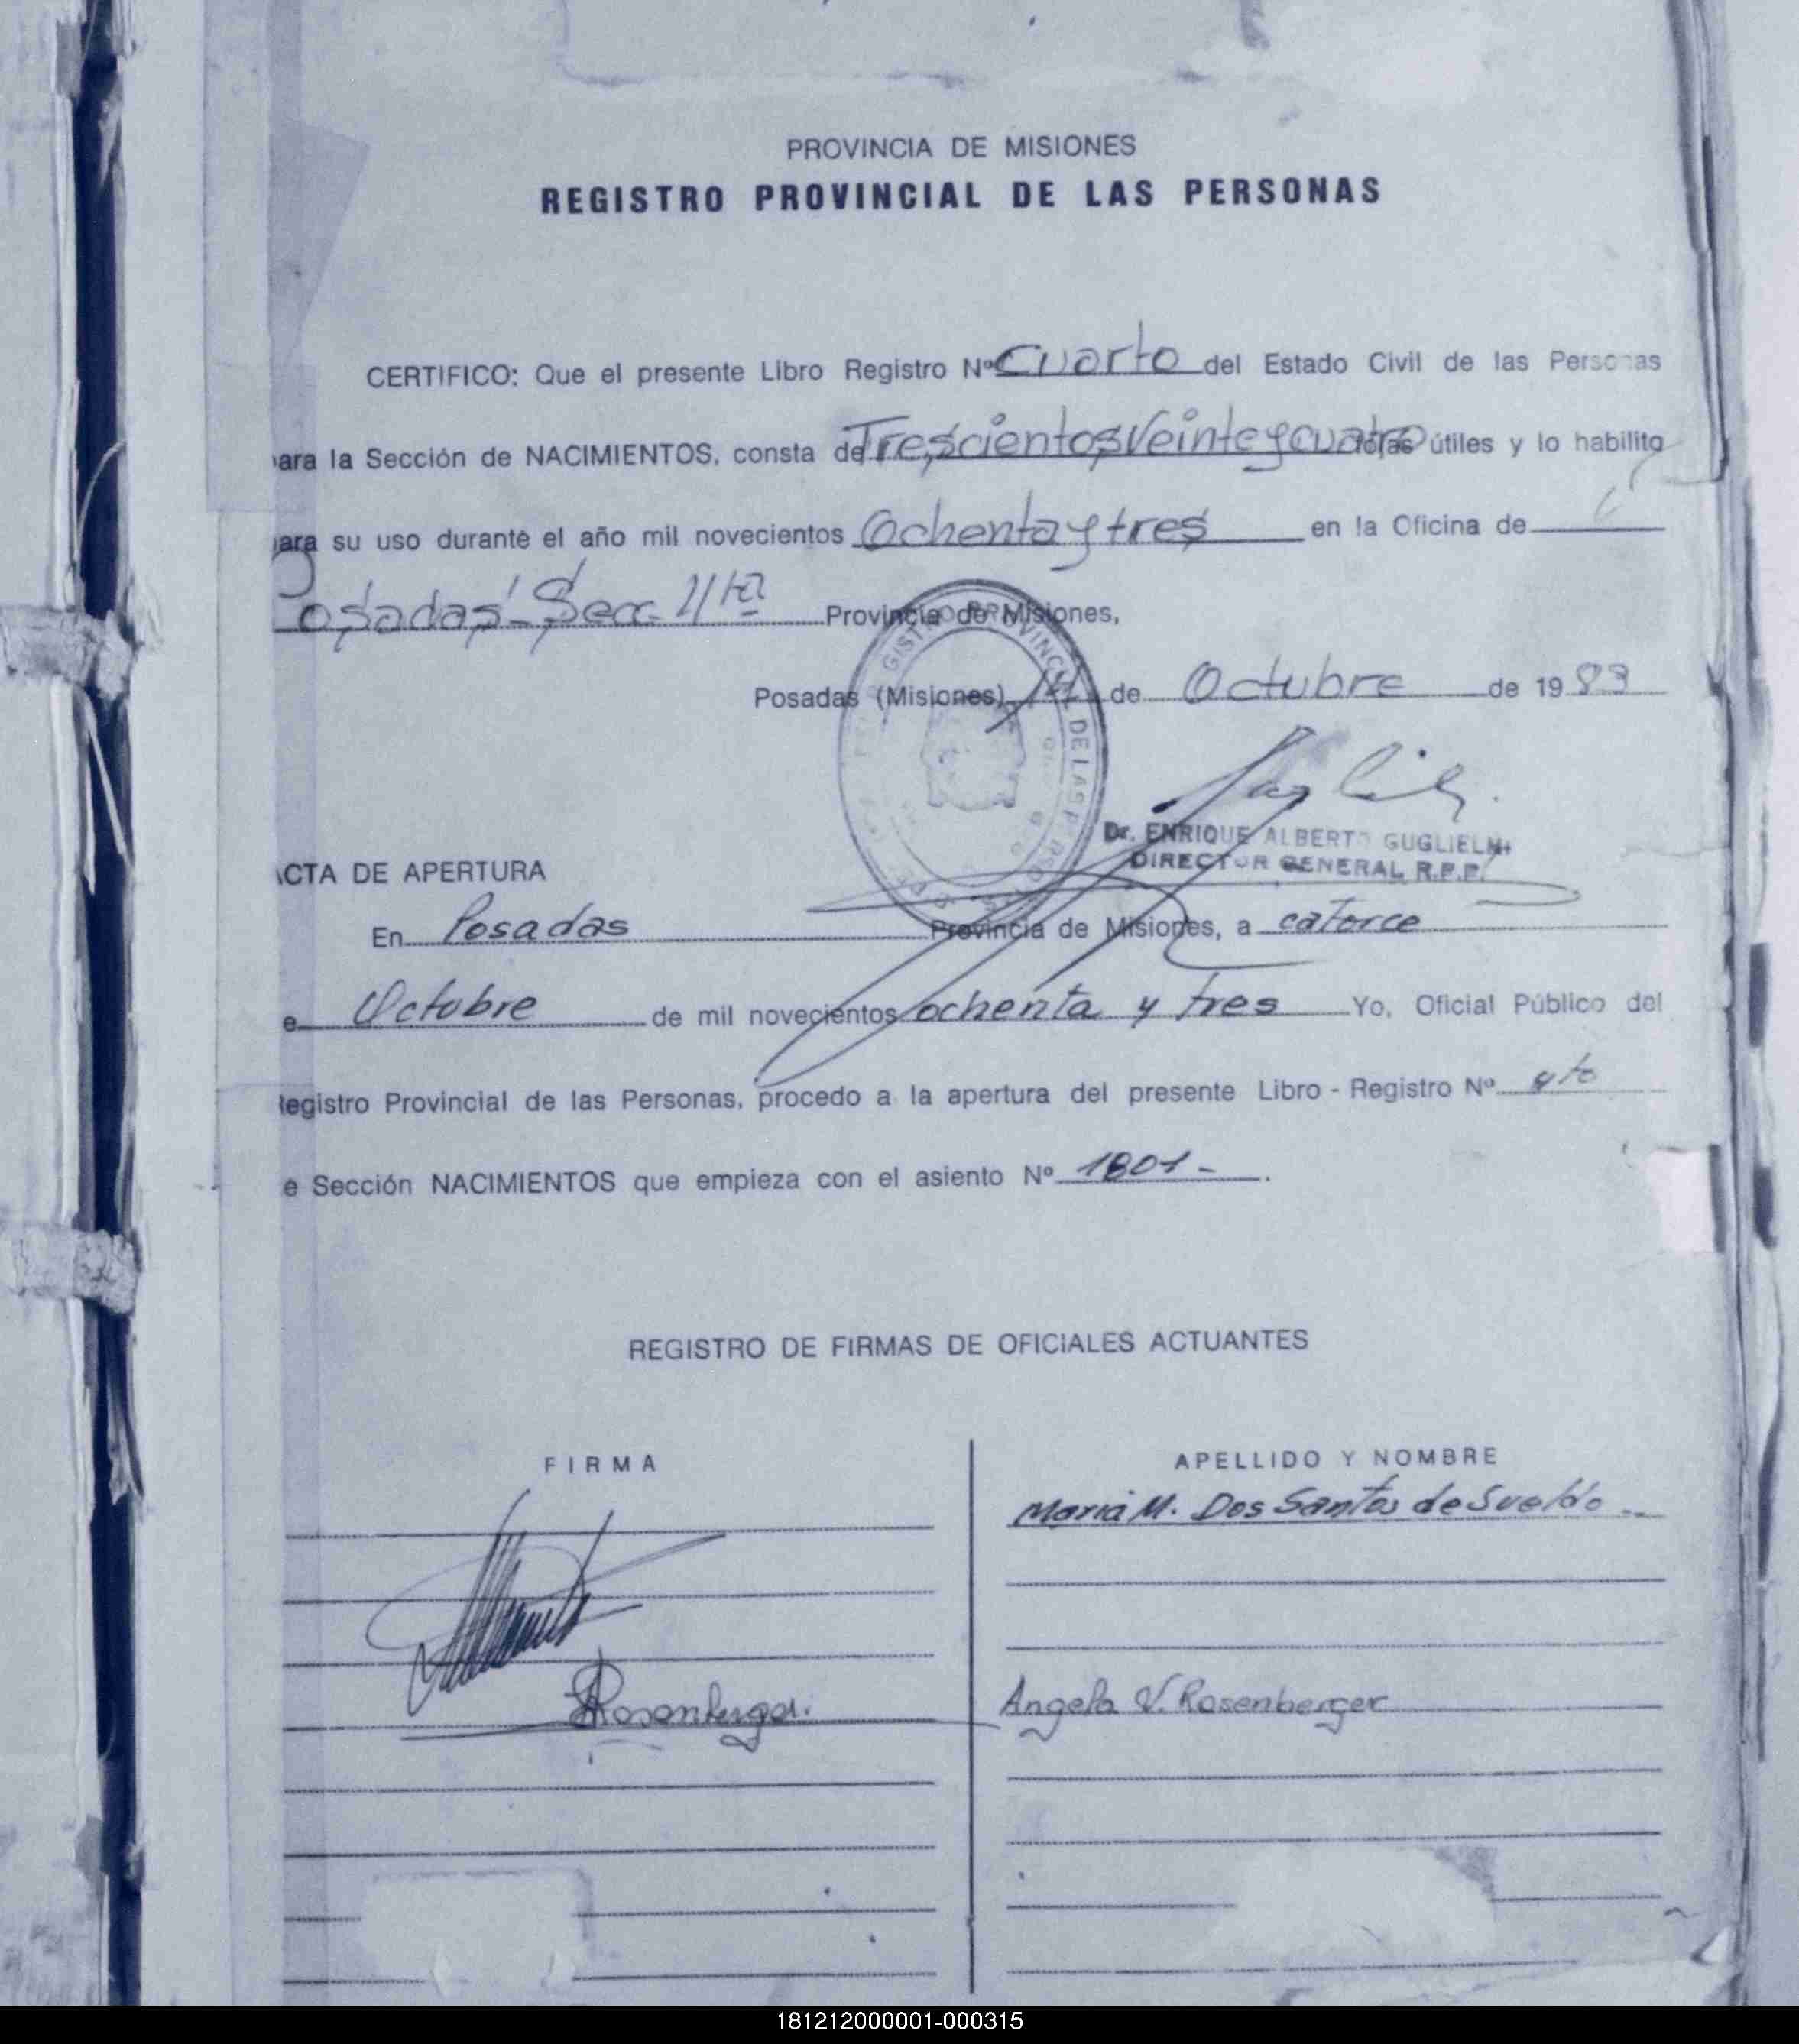 PROVINCIA DE MISIONES
REGISTRO PROVINCIAL DE LAS PERSONAS
CERTIFICO: Que el presente Libro Registro Nº Cuarto del Estado Civil de las Personas
ara la Sección de NACIMIENTOS, consta de Trescientos Veinte y cuatro fojas útiles y lo habilito
ara su uso durante el año mil novecientos Ochenta y tres en la Oficina de
osadas - Secc. 4ta Provincia de Misiones,
Posadas (Misiones), 14 de Octubre de 1983
Dr. ENRIQUE ALBERTO GUGLIELMI
DIRECTOR GENERAL R.P.P.
ACTA DE APERTURA
En Posadas Provincia de Misiones, a catorce
e Octubre de mil novecientos ochenta y tres Yo, Oficial Público del
Registro Provincial de las Personas, procedo a la apertura del presente Libro - Registro Nº 4to
e Sección NACIMIENTOS que empieza con el asiento Nº 1801 - .
REGISTRO DE FIRMAS DE OFICIALES ACTUANTES
FIRMA APELLIDO Y NOMBRE
Maria M. Dos Santos de Sueldo
Rosenberger. Angela V. Rosenberger
181212000001-000315